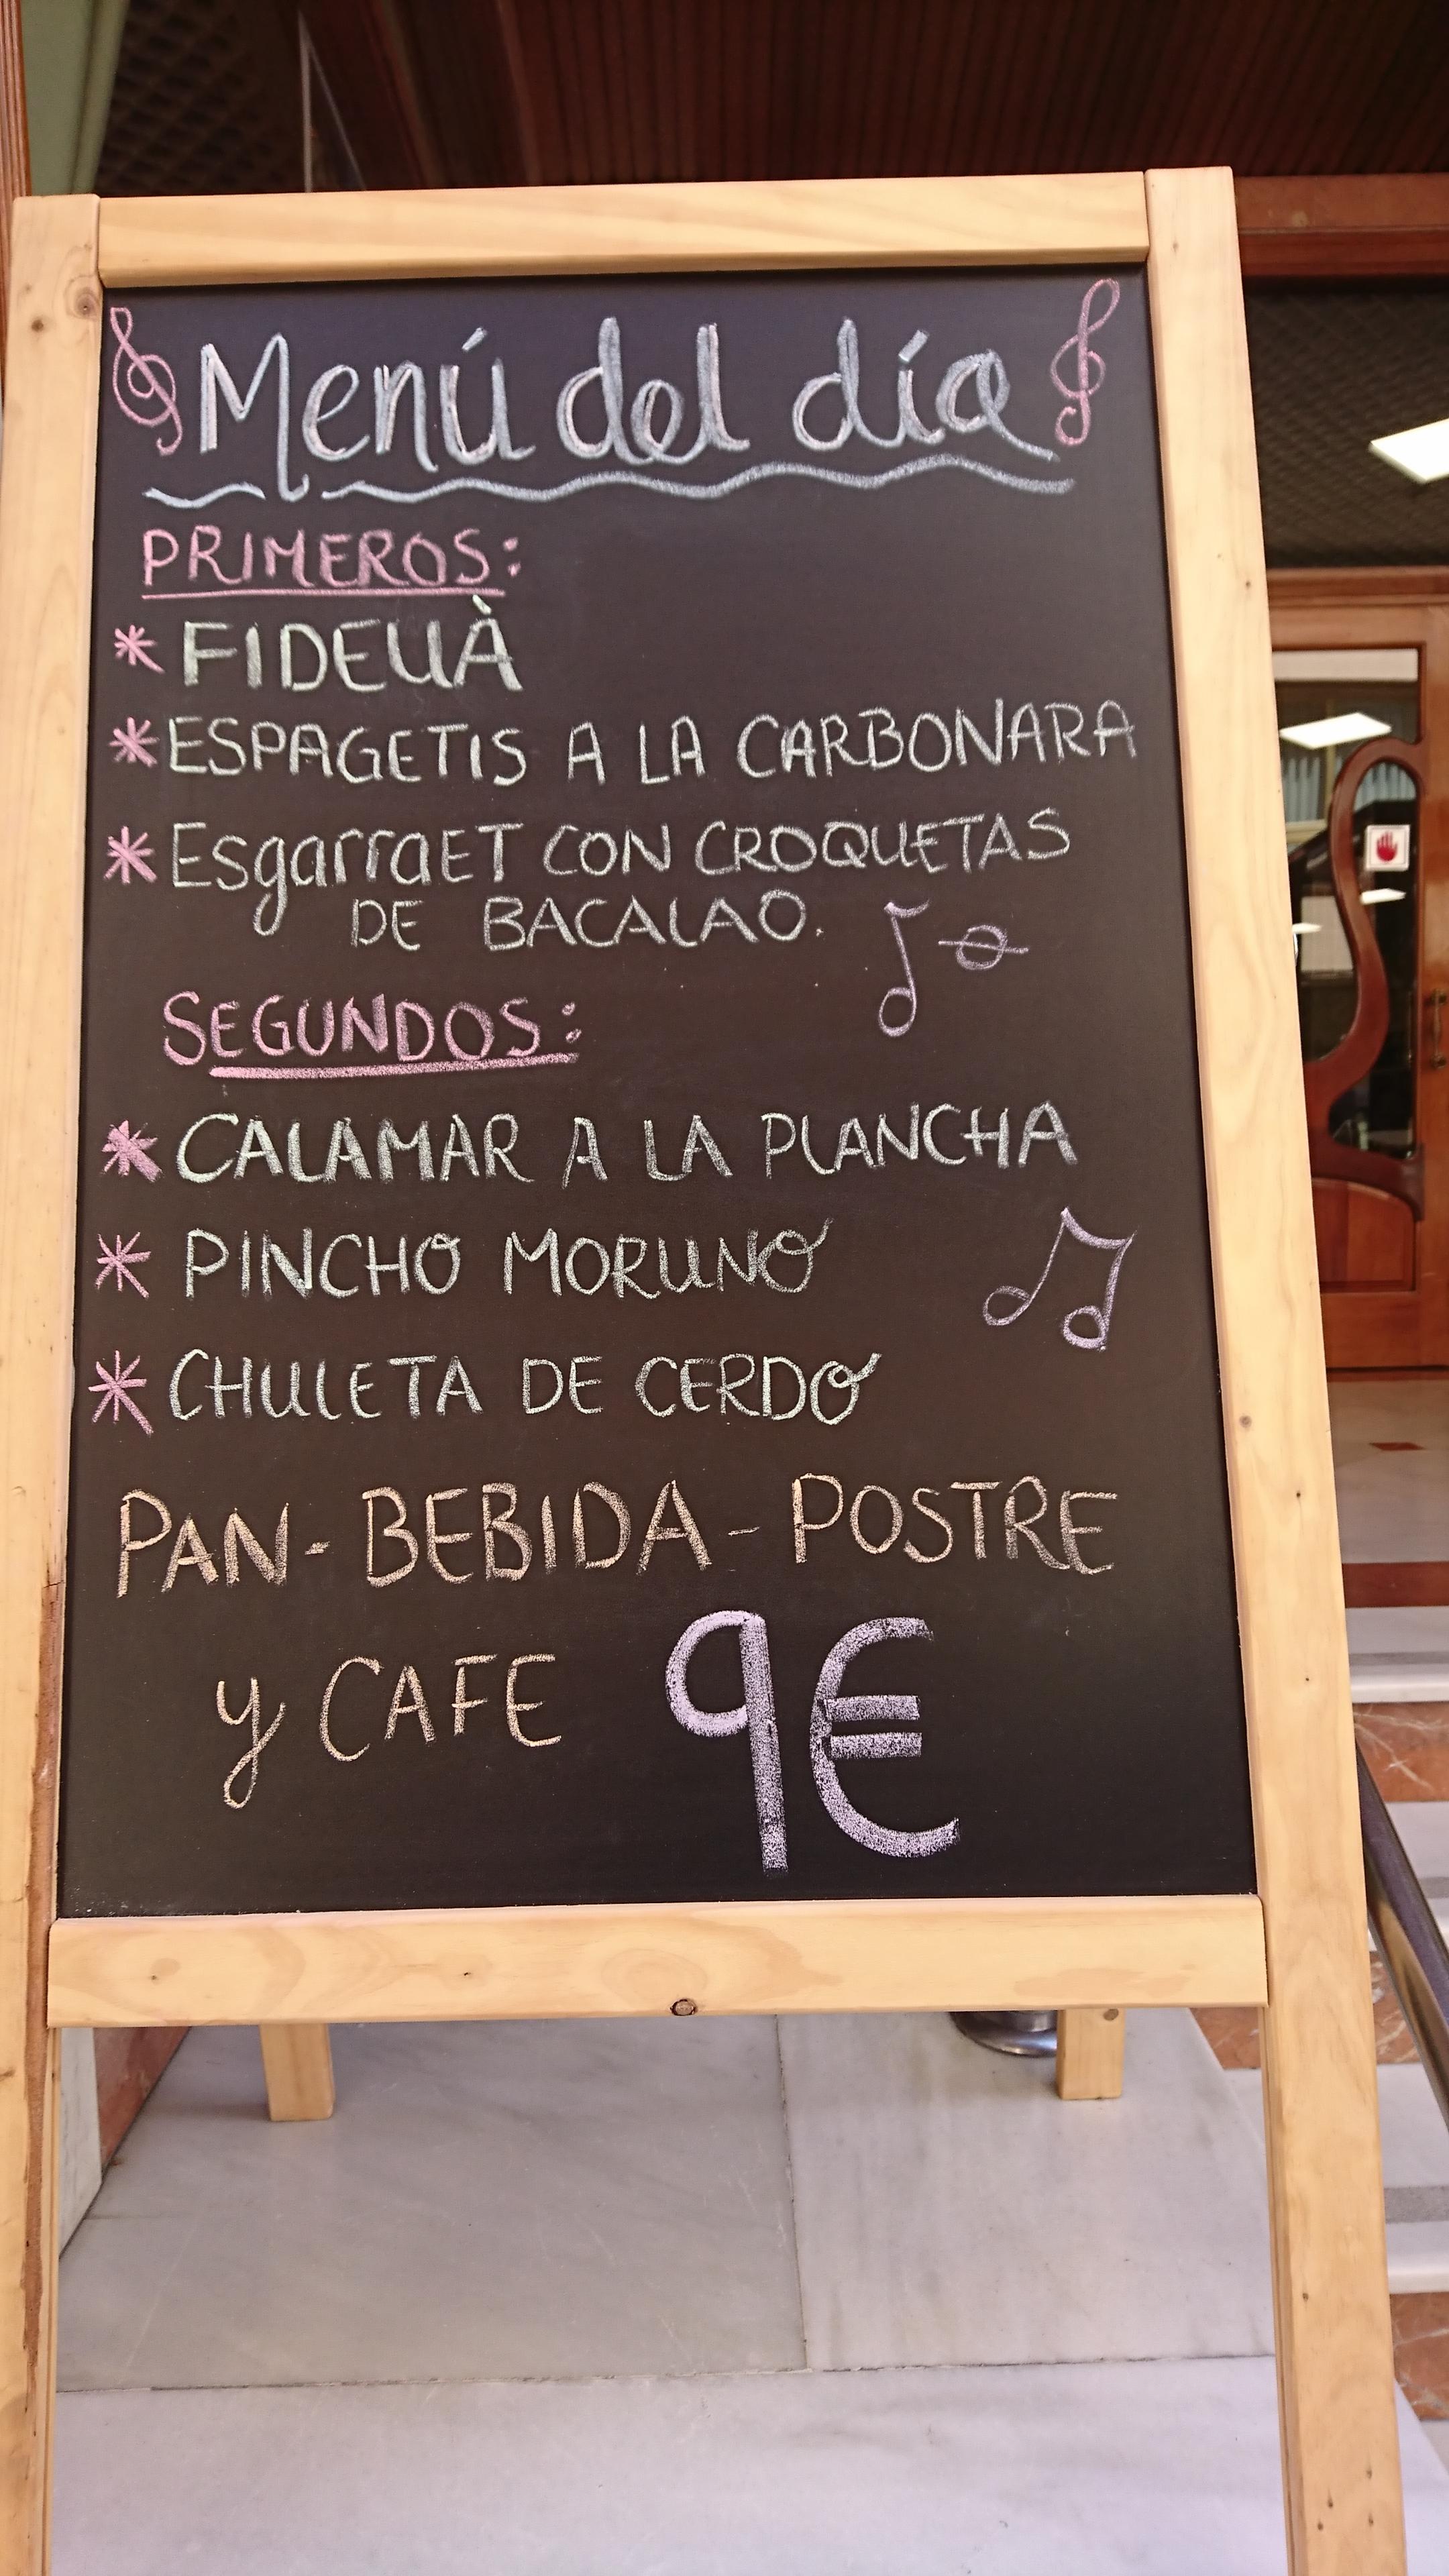 Menú del día
PRIMEROS:
* FIDEUÀ
* ESPAGETIS A LA CARBONARA
* EsgarraET CON CROQUETAS
DE BACALAO.
SEGUNDOS:
* CALAMAR A LA PLANCHA
* PINCHO MORUNO
* CHULETA DE CERDO
PAN - BEBIDA - POSTRE
y CAFE 9€